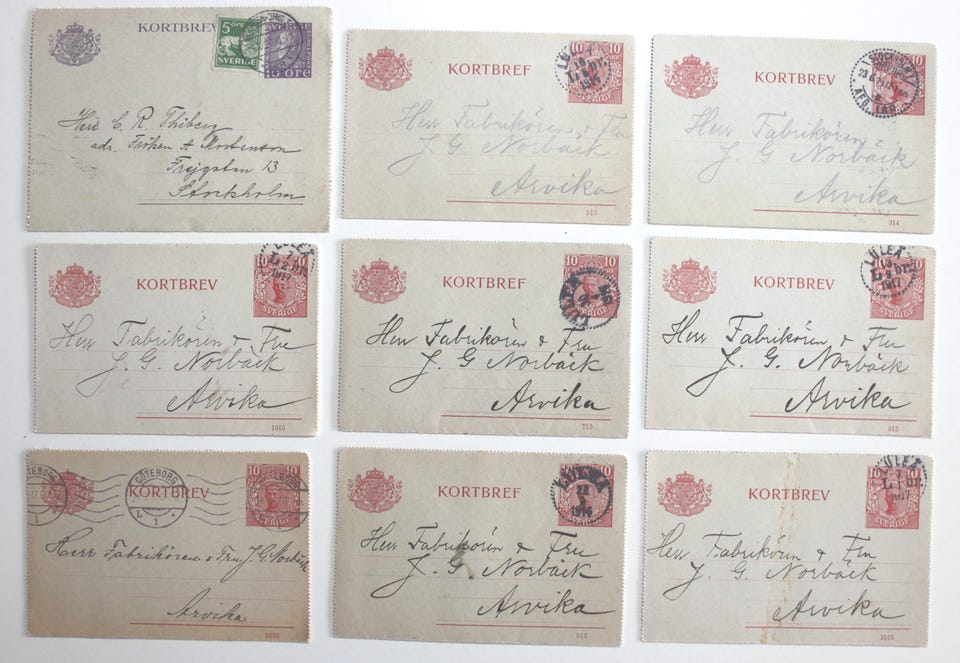 KORTBREV
5 ÖRE
SVERIGE
15 ÖRE
Herr C. R. Thiberg
adr. Fröken A Mortenson
Frejgatan 13
Stockholm
KORTBREF
10 10
SVERIGE
LULEÅ
1917
Herr Fabrikören & Fru
J. G. Norbäck
Arvika
513
KORTBREV
10
AFG.
Herr Fabrikören &
J. G. Norbäck
Arvika
914
KORTBREV
10 10
SVERIGE
LULEÅ
1917
Herr Fabrikören & Fru
J. G. Norbäck
Arvika
1015
KORTBREF
10
Herr Fabrikören & Fru
J. G. Norbäck
Arvika
713
KORTBREV
10
SVERIGE
LULEÅ
1917
Herr Fabrikören & Fru
J. G. Norbäck
Arvika
915
KORTBREV
GÖTEBORG
1
GÖTEBORG
L. 1
10 10
SVERIGE
Herr Fabrikören & Fru J. G. Norbäck
Arvika
1016
KORTBREF
10
SVERIGE
1916
Herr Fabrikören & Fru
J. G. Norbäck
Arvika
513
KORTBREV
10
SVERIGE
LULEÅ
1917
Herr Fabrikören & Fru
J. G. Norbäck
Arvika
1015